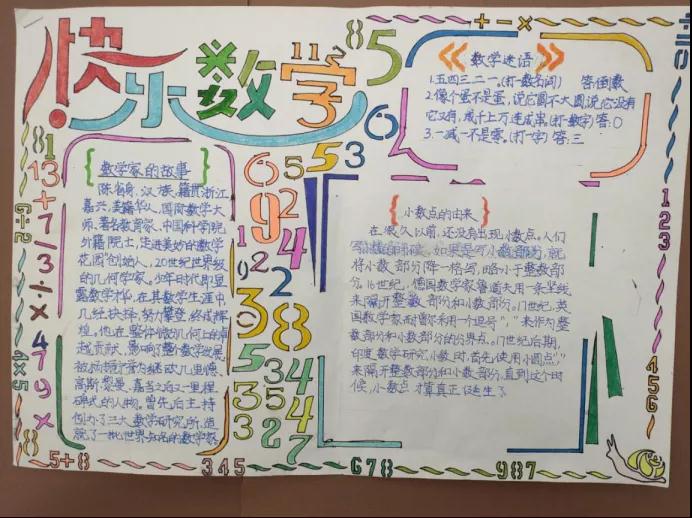 快乐数学
数学迷语
1.五四三二一。(打一数名词) 答:倒数
2.像个蛋不是蛋,说它圆不大圆,说它没有
它又有,成千上万连成串(打一数字)答:0
3.一减一不是零。(打一字)答:三
数学家的故事
陈省身,汉族,籍贯浙江
嘉兴,美籍华人,国际数学大
师、著名教育家、中国科学院
外籍院士,走进美妙的数学
花园创始人,20世纪世界级
的几何学家。少年时代即显
露数学才华,在其数学生涯中,
几经抉择,努力攀登,终成辉
煌。他在整体微分几何上的卓
越贡献,影响了整个数学发展,
被杨振宁誉为继欧几里德、
高斯、黎曼、嘉当之后又一里程
碑式的人物。曾先后主持
创办了三大数学研究所,造
就了一批世界知名的数学家。
小数点的由来
在很久以前,还没有出现小数点。人们
写小数的时候,如果是写小数部分,就
将小数部分降一格写,略小于整数部
分。16世纪,德国数学家鲁道夫用一条竖线
来隔开整数部分和小数部分。17世纪,英
国数学家耐普尔采用个逗号“,”来作为整
数部分和小数部分的分界点。17世纪后期,
印度数学研究小数时,首先使用小圆点“.”
来隔开整数部分和小数部分,直到这个时
候,小数点才算真正诞生了
5+8
345
678
987